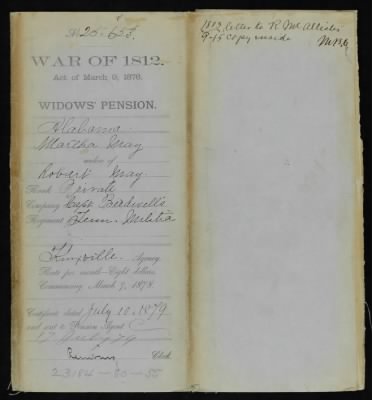 25.653.
WAR OF 1812.
Act of March 9, 1878.
WIDOWS' PENSION.
Alabama
Martha May
widow of
Robert May
Rank Private
Company Capt
Regiment Tenn. Militia
Knoxville. Agency.
Rate per month—Eight dollars.
Commencing March 9, 1878.
Certificate dated July 10. 1879
and sent to Pension Agent
Clerk.
23184-80-55
letter to R Mc Allister
copy inside